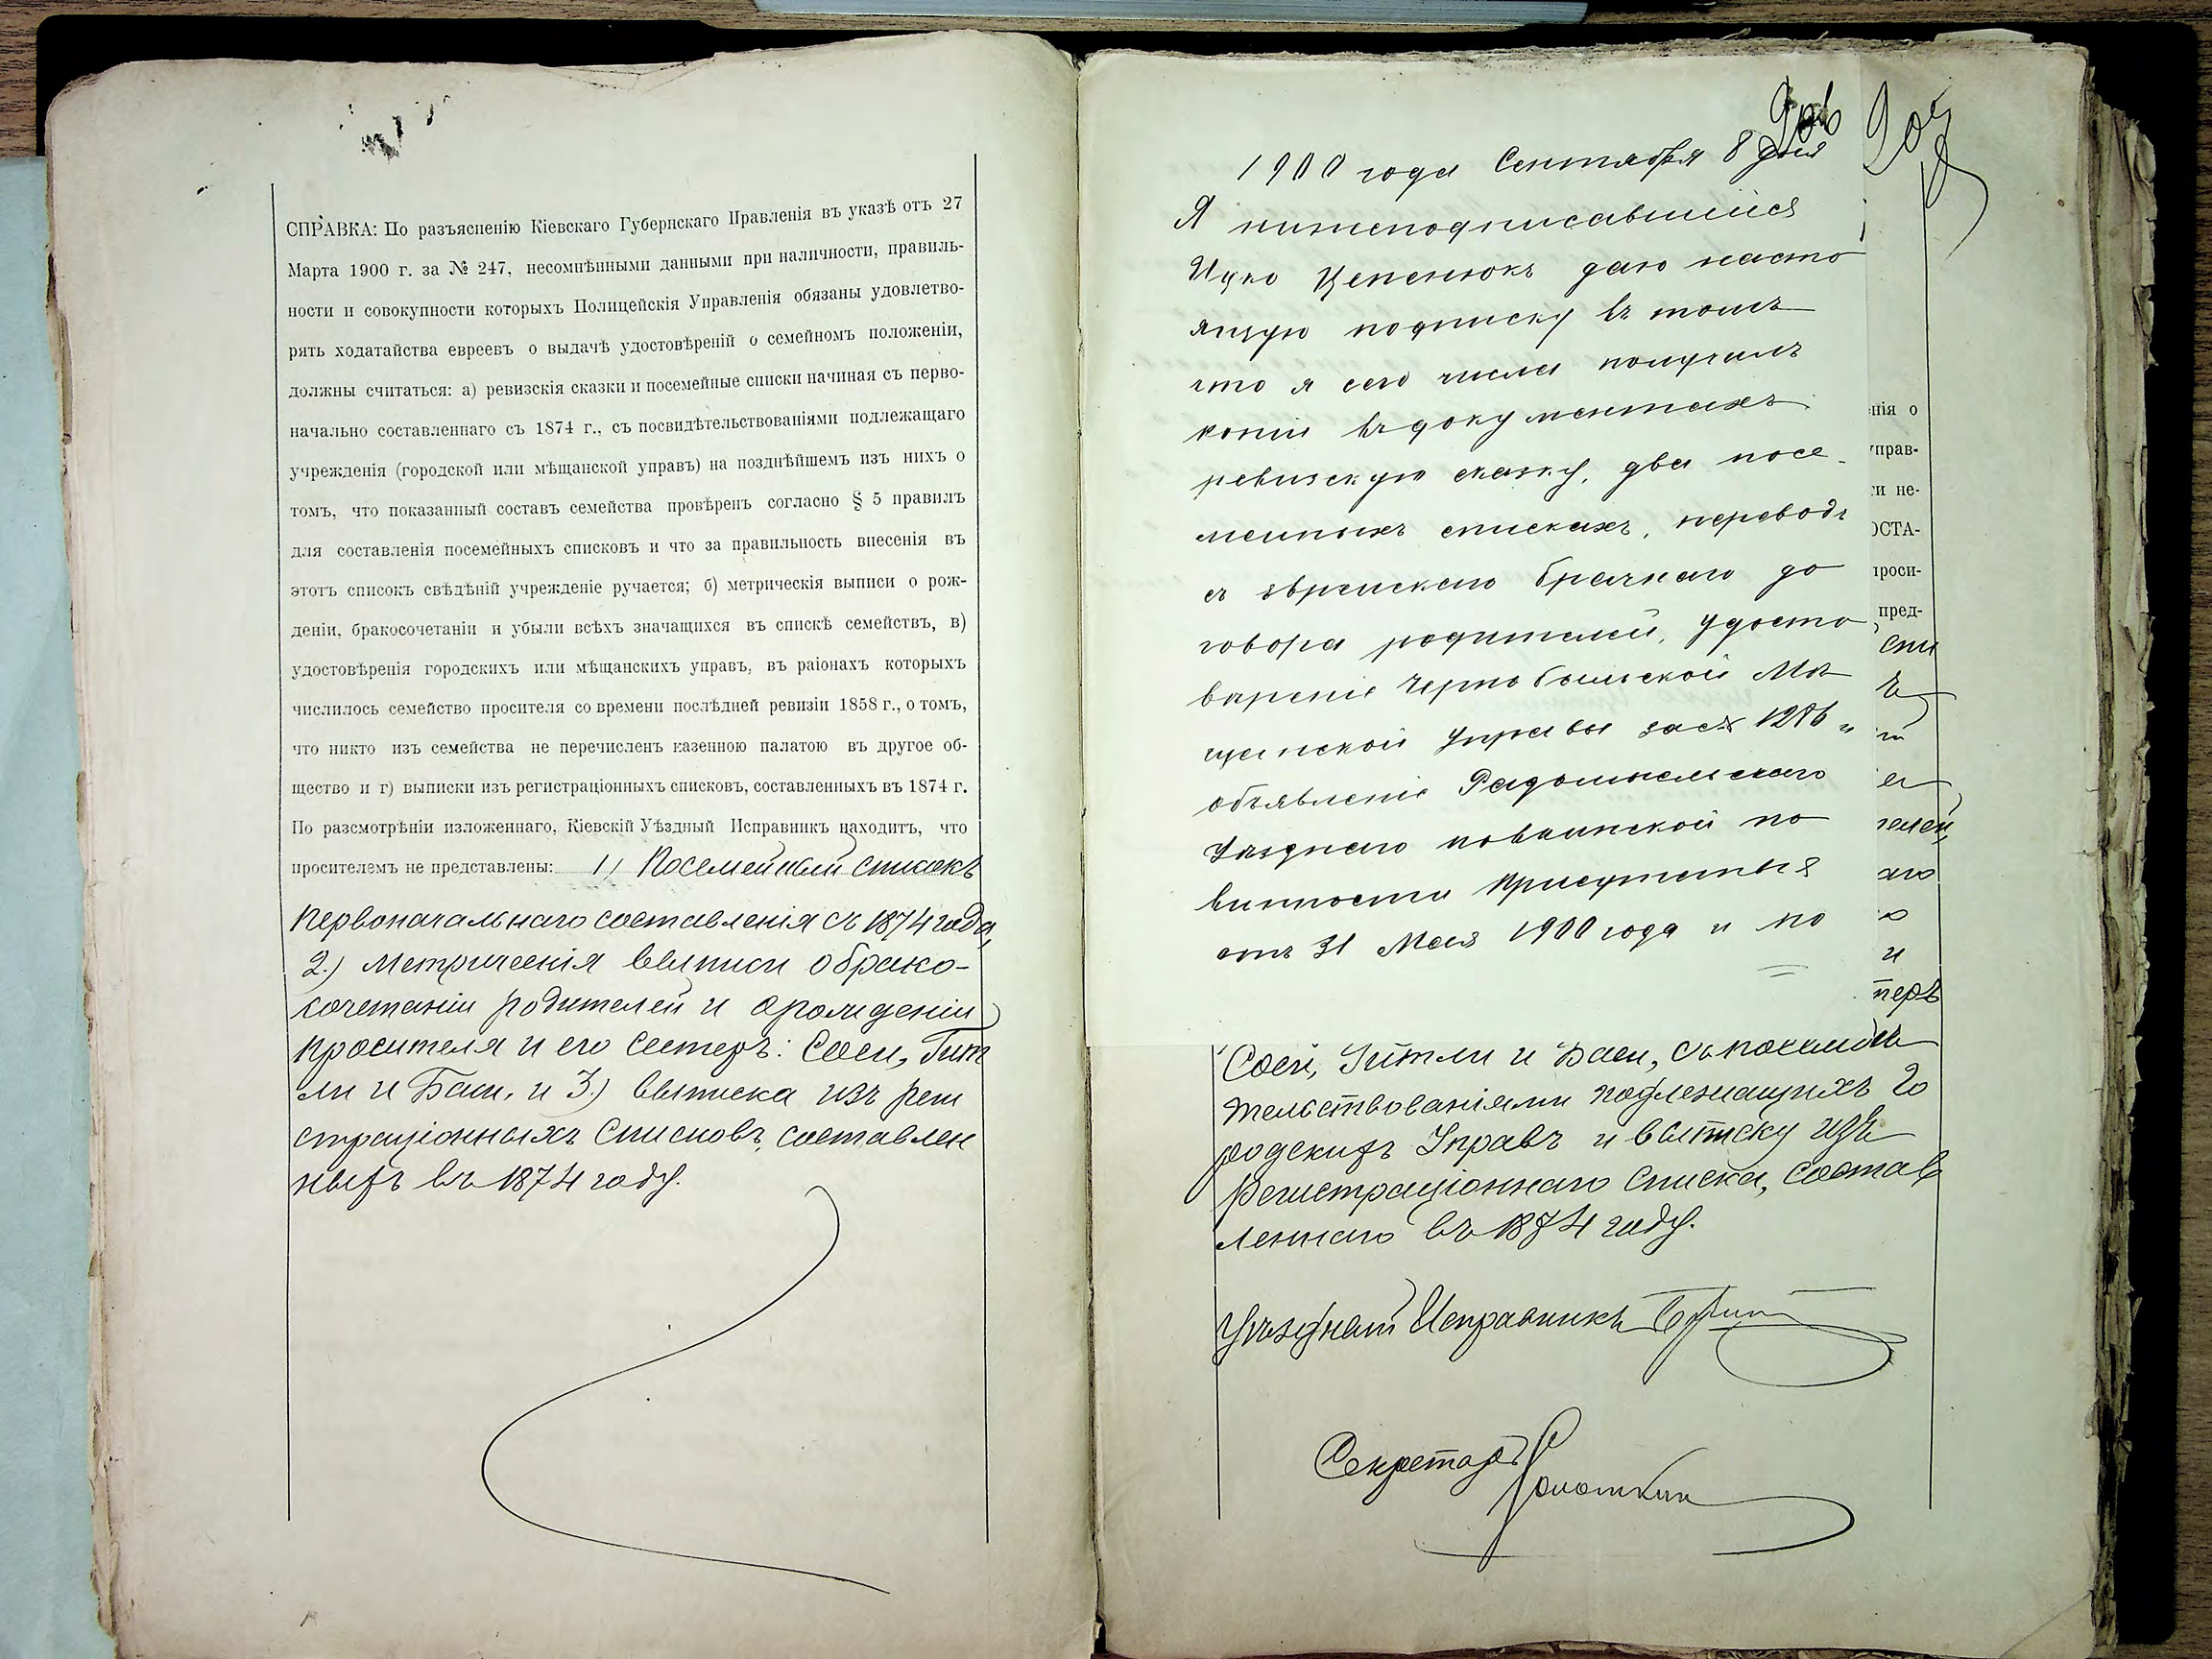 СПРАВКА: По разъясненію Кіевскаго Губернскаго Правленія въ указѣ отъ 27
Марта 1900 г. за № 247, несомнѣнными данными при наличности, правиль-
ности и совокупности которыхъ Полицейскія Управленія обязаны удовлетво-
рять ходатайства евреевъ о выдачѣ удостовѣреній о семейномъ положеніи,
должны считаться: а) ревизскія сказки и посемейные списки начиная съ перво-
начально составленнаго съ 1874 г., съ посвидѣтельствованіями подлежащаго
учрежденія (городской или мѣщанской управъ) на позднѣйшемъ изъ нихъ о
томъ, что показанный составъ семейства провѣренъ согласно § 5 правилъ
для составленія посемейныхъ списковъ и что за правильность внесенія въ
этотъ списокъ свѣдѣній учрежденіе ручается; б) метрическія выписи о рож-
деніи, бракосочетаніи и убыли всѣхъ значащихся въ спискѣ семействъ, в)
удостовѣренія городскихъ или мѣщанскихъ управъ, въ раіонахъ которыхъ
числилось семейство просителя со времени послѣдней ревизіи 1858 г., о томъ,
что никто изъ семейства не перечисленъ казенною палатою въ другое об-
щество и г) выписки изъ регистраціонныхъ списковъ, составленныхъ въ 1874 г.
По разсмотрѣніи изложеннаго, Кіевскій Уѣздный Исправникъ находитъ, что
просителемъ не представлены: 1) Посемейный списокъ
первоначальнаго составленія съ 1874 года,
2.) метрическія выписи о брако-
сочетаніи родителей и о рожденіи
просителя и его сестеръ: Соси, Гит
ли и Баси, и 3.) выписка изъ реги
страціонныхъ списковъ, составлен
ныхъ въ 1874 году.
206 207
1900 года Сентября 8 дня
Я нижеподписавшійся
Ицко Цепенюкъ даю насто
ящую подписку въ томъ
что я сего числа получилъ
копіи въ документахъ
ревизскую сказку, два посе-
мейныхъ спискахъ, переводъ
съ еврейскаго брачнаго до
говора родителей, удосто
вѣреніе Чернобыльской Мѣ
щанской управы за № 1286 и
объявленіе Радомысльскаго
Уѣзднаго по воинской по
винности присутствія
отъ 31 Мая 1900 года и по
нія о
управ-
ти не-
ОСТА-
проси-
пред-
спи
аго
и
перъ
Соси, Гитли и Баси, съ посвидѣ
тельствованіями подлежащихъ Го
родскихъ Управъ и выписку изъ
регистраціоннаго списка, состав
леннаго въ 1874 году.
Уѣздный Исправникъ
Секретарь